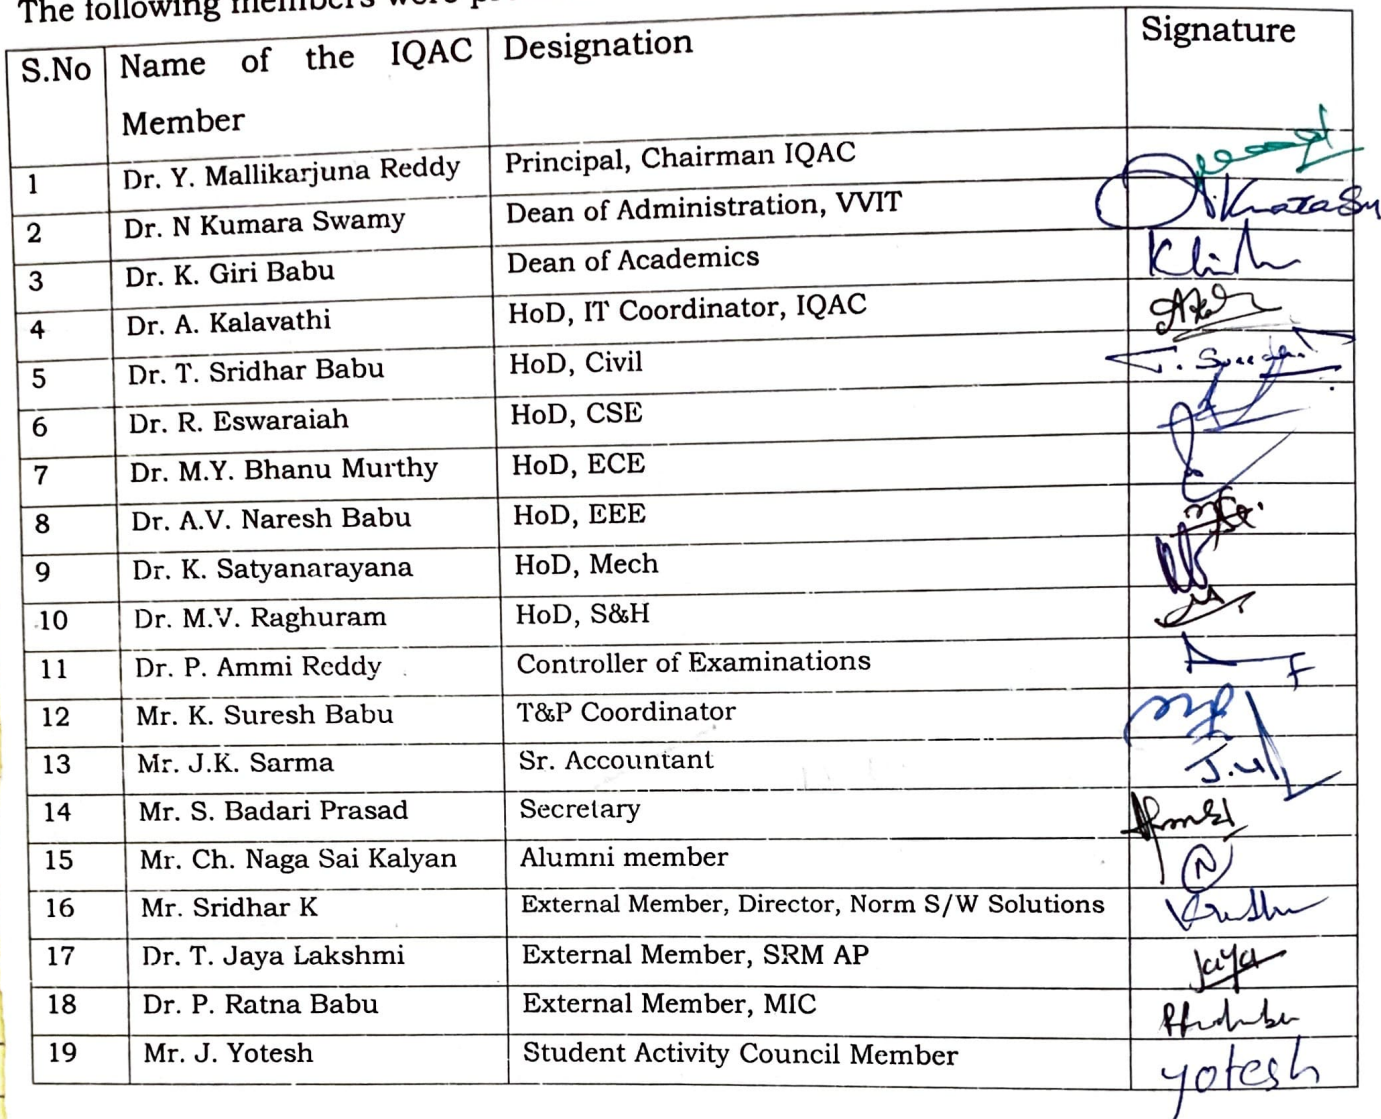 The following members were
S.No Name of the IQAC Member Designation Signature
1 Dr. Y. Mallikarjuna Reddy Principal, Chairman IQAC
2 Dr. N Kumara Swamy Dean of Administration, VVIT
3 Dr. K. Giri Babu Dean of Academics
4 Dr. A. Kalavathi HoD, IT Coordinator, IQAC
5 Dr. T. Sridhar Babu HoD, Civil
6 Dr. R. Eswaraiah HoD, CSE
7 Dr. M.Y. Bhanu Murthy HoD, ECE
8 Dr. A.V. Naresh Babu HoD, EEE
9 Dr. K. Satyanarayana HoD, Mech
10 Dr. M.V. Raghuram HoD, S&H
11 Dr. P. Ammi Reddy Controller of Examinations
12 Mr. K. Suresh Babu T&P Coordinator
13 Mr. J.K. Sarma Sr. Accountant
14 Mr. S. Badari Prasad Secretary
15 Mr. Ch. Naga Sai Kalyan Alumni member
16 Mr. Sridhar K External Member, Director, Norm S/W Solutions
17 Dr. T. Jaya Lakshmi External Member, SRM AP Jaya
18 Dr. P. Ratna Babu External Member, MIC
19 Mr. J. Yotesh Student Activity Council Member yotesh